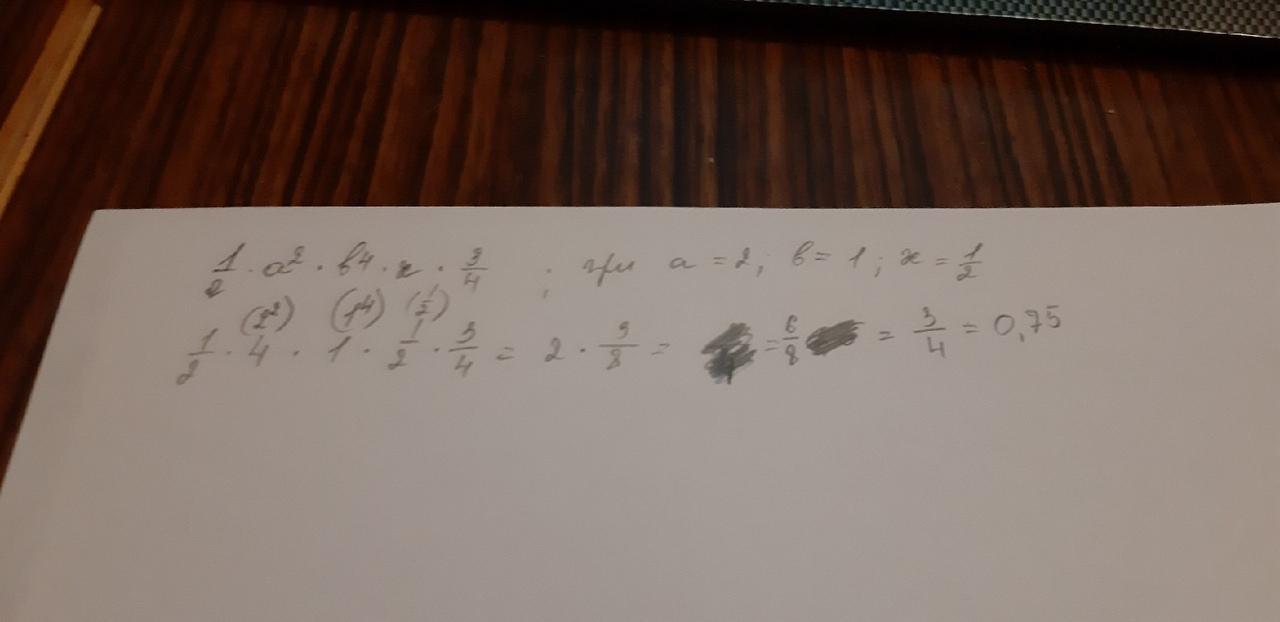 1/2 · a² · b⁴ · x · 3/4 ; при a = 2; b = 1; x = 1/2
(2²) (1⁴) (1/2)
1/2 · 4 · 1 · 1/2 · 3/4 = 2 · 3/8 = = 6/8 = 3/4 = 0,75